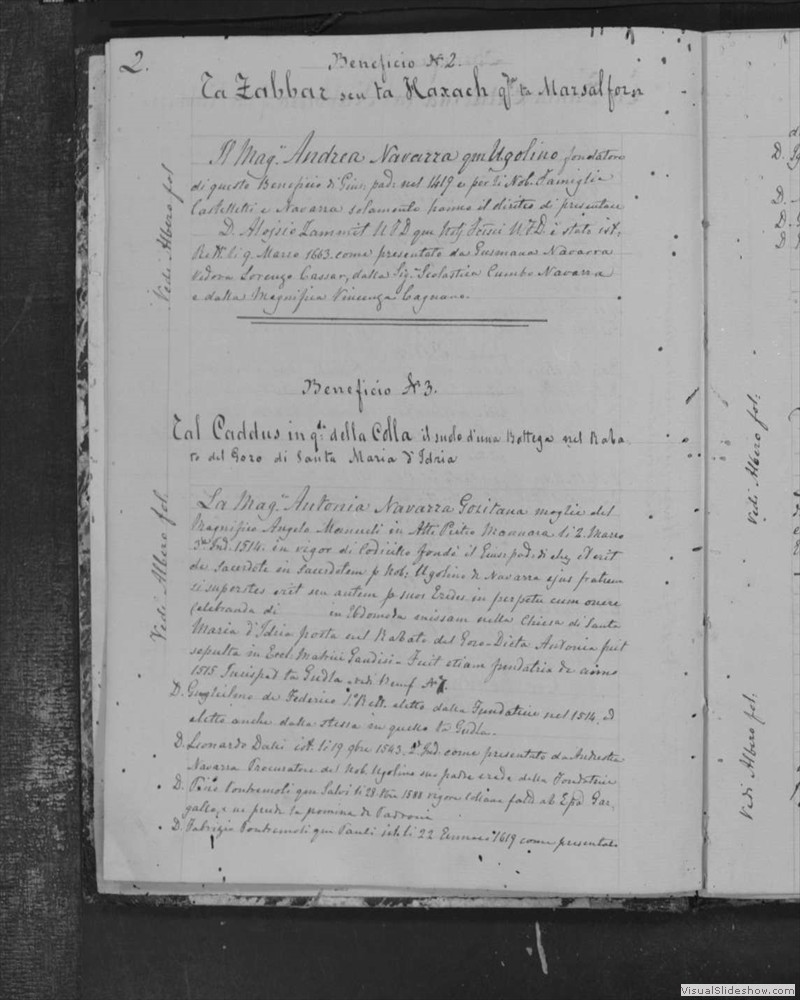 2.
Beneficio N 2.
Ta Zabbar seu ta Haxach q.ta ta Marsalforn
Il Mag.co Andrea Navarra qm Ugolino fondatore
di questo Beneficio di Gius: pad: nel 1419 e per li Nob. Famiglie
Castelletti e Navarra solamente hanno il diritto di presentare
D. Aloisio Zammit U.J.D. qm U.J.D. è stato ist.
Rett. li 9 Marzo 1663. come presentato da Gusmana Navarra
Vedova Lorenzo Cassar, dalla Sig.ra Scolastica Cumbo Navarra
e dalla Magnifica Vincenza Cagnano.
Vedi Albero fol.
Beneficio N 3.
Tal Caddus in q.a della Colla il suolo d'una Bottega nel Raba
to del Gozo di Santa Maria d'Idria
La Mag.ca Antonia Navarra Goritana moglie del
Magnifico Angelo Manueli in Atti Pietro Mannara li 2. Marzo
Ind. 1514. in vigor di Codicillo fondò il Gius pad: di
de Sacerdote in Sacerdotem p Nob: Ugolino de Navarra ejus fratrum
si superstes erit seu autem p suos Eredes in perpetu cum onere
Celebranda di in Ebdomeda missam nella Chiesa di Santa
Maria d'Idria posta nel Rabato del Gozo. Dicta Antonia fuit
sepulta in Eccl. Matrici Gaudisii. Fuit etiam fondatria de
1515. ta Gudla vedi Benef. N
D. Guglielmo de Federico 1.o Rett. eletto dalla Fundatrice nel 1514. ed
eletto anche dalla stessa in quello ta Gudla.
D. Leonardo Dalli ist. li 19 9bre 1543. 2a Ind. come presentato da Andreotta
Navarra Procuratore del Nob. Ugolino suo padre erede della Fondatrice
D. Pontremoli qm Salvi li 28 1588 vigore ab Gar,
gallo, e
D. Fabrizio Pontremoli qm Pauli ist. li 22 1619 come presentato
Vedi Albero fol.
Vedi Albero fol:
Vedi Albero fol:
D.
D.
D.
D.
VisualSlideshow.com